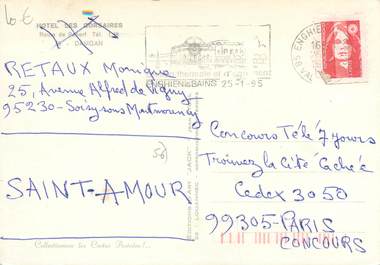 HOTEL LES CORSAIRES
DAMGAN
ENGHIEN LES BAINS 25-1-95
RETAUX Monique
25, Avenue Alfred de Vigny
95230-Soisy sous Montmorency
56
SAINT-AMOUR
Collectionnez les Cartes Postales !...
"JACK"
Concours Télé 7 jours
Trouvez la Cité Cachée
Cedex 3050
99305-PARIS
CONCOURS